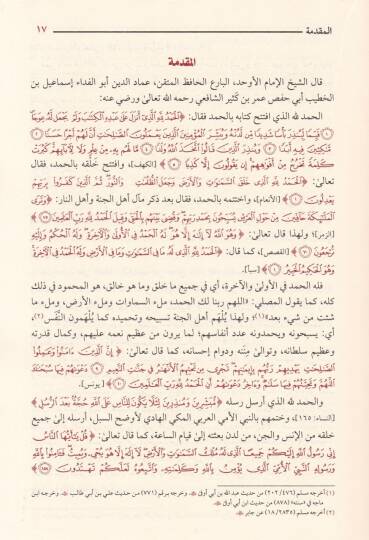 المقدمة ١٧
المقدمة
قال الشيخ الإمام الأوحد، البارع الحافظ المتقن، عماد الدين أبو الفداء إسماعيل بن
الخطيب أبي حفص عمر بن كثير الشافعي رحمه الله تعالى ورضي عنه:
الحمد لله الذي افتتح كتابه بالحمد فقال: ﴿الْحَمْدُ لِلَّهِ الَّذِي أَنْزَلَ عَلَى عَبْدِهِ الْكِتَابَ وَلَمْ يَجْعَل لَّهُ عِوَجًا ۝
قَيِّمًا لِّيُنذِرَ بَأْسًا شَدِيدًا مِّن لَّدُنْهُ وَيُبَشِّرَ الْمُؤْمِنِينَ الَّذِينَ يَعْمَلُونَ الصَّالِحَاتِ أَنَّ لَهُمْ أَجْرًا حَسَنًا ۝
مَّاكِثِينَ فِيهِ أَبَدًا ۝ وَيُنذِرَ الَّذِينَ قَالُوا اتَّخَذَ اللَّهُ وَلَدًا ۝ مَّا لَهُم بِهِ مِنْ عِلْمٍ وَلَا لِآبَائِهِمْ كَبُرَتْ
كَلِمَةً تَخْرُجُ مِنْ أَفْوَاهِهِمْ إِن يَقُولُونَ إِلَّا كَذِبًا ۝﴾ [الكهف]، وافتتح خلقه بالحمد، فقال
تعالى: ﴿الْحَمْدُ لِلَّهِ الَّذِي خَلَقَ السَّمَاوَاتِ وَالْأَرْضَ وَجَعَلَ الظُّلُمَاتِ وَالنُّورَ ثُمَّ الَّذِينَ كَفَرُوا بِرَبِّهِمْ
يَعْدِلُونَ ۝﴾ [الأنعام]، واختتمه بالحمد، فقال بعد ذكر مآل أهل الجنة وأهل النار: ﴿وَتَرَى
الْمَلَائِكَةَ حَافِّينَ مِنْ حَوْلِ الْعَرْشِ يُسَبِّحُونَ بِحَمْدِ رَبِّهِمْ وَقُضِيَ بَيْنَهُم بِالْحَقِّ وَقِيلَ الْحَمْدُ لِلَّهِ رَبِّ الْعَالَمِينَ ۝﴾
[الزمر]؛ ولهذا قال تعالى: ﴿وَهُوَ اللَّهُ لَا إِلَهَ إِلَّا هُوَ لَهُ الْحَمْدُ فِي الْأُولَى وَالْآخِرَةِ وَلَهُ الْحُكْمُ وَإِلَيْهِ
تُرْجَعُونَ ۝﴾ [القصص]، كما قال: ﴿الْحَمْدُ لِلَّهِ الَّذِي لَهُ مَا فِي السَّمَاوَاتِ وَمَا فِي الْأَرْضِ وَلَهُ الْحَمْدُ فِي الْآخِرَةِ
وَهُوَ الْحَكِيمُ الْخَبِيرُ ۝﴾ [سبأ].
فله الحمد في الأولى والآخرة، أي في جميع ما خلق وما هو خالق، هو المحمود في ذلك
كله، كما يقول المصلي: «اللهم ربنا لك الحمد، ملء السماوات وملء الأرض، وملء ما
شئت من شيء بعد»(١)؛ ولهذا يُلهم أهل الجنة تسبيحه وتحميده كما يُلهمون النَّفَس(٢)،
أي: يسبحونه ويحمدونه عدد أنفاسهم؛ لما يرون من عظيم نعمه عليهم، وكمال قدرته
وعظيم سلطانه، وتوالي مِنَنه ودوام إحسانه، كما قال تعالى: ﴿إِنَّ الَّذِينَ آمَنُوا وَعَمِلُوا
الصَّالِحَاتِ يَهْدِيهِمْ رَبُّهُم بِإِيمَانِهِمْ تَجْرِي مِن تَحْتِهِمُ الْأَنْهَارُ فِي جَنَّاتِ النَّعِيمِ ۝ دَعْوَاهُمْ فِيهَا سُبْحَانَكَ
اللَّهُمَّ وَتَحِيَّتُهُمْ فِيهَا سَلَامٌ وَآخِرُ دَعْوَاهُمْ أَنِ الْحَمْدُ لِلَّهِ رَبِّ الْعَالَمِينَ ۝﴾ [يونس].
والحمد لله الذي أرسل رسله ﴿مُّبَشِّرِينَ وَمُنذِرِينَ لِئَلَّا يَكُونَ لِلنَّاسِ عَلَى اللَّهِ حُجَّةٌ بَعْدَ الرُّسُلِ﴾
[النساء: ١٦٥]، وختمهم بالنبي الأمي العربي المكي الهادي لأوضح السبل، أرسله إلى جميع
خلقه من الإنس والجن، من لدن بعثته إلى قيام الساعة، كما قال تعالى: ﴿قُلْ يَا أَيُّهَا النَّاسُ
إِنِّي رَسُولُ اللَّهِ إِلَيْكُمْ جَمِيعًا الَّذِي لَهُ مُلْكُ السَّمَاوَاتِ وَالْأَرْضِ لَا إِلَهَ إِلَّا هُوَ يُحْيِي وَيُمِيتُ فَآمِنُوا بِاللَّهِ
وَرَسُولِهِ النَّبِيِّ الْأُمِّيِّ الَّذِي يُؤْمِنُ بِاللَّهِ وَكَلِمَاتِهِ وَاتَّبِعُوهُ لَعَلَّكُمْ تَهْتَدُونَ ۝﴾
(١) أخرجه مسلم (٢٠٢/٤٧٦) من حديث عبد الله بن أبي أوفى، وخرجه برقم (٧٧١) من حديث علي بن أبي طالب، وخرجه ابن
ماجه في «سننه» (٨٧٨) من حديث ابن أبي أوفى
(٢) أخرجه مسلم (١٨/٢٨٣٥) عن جابر